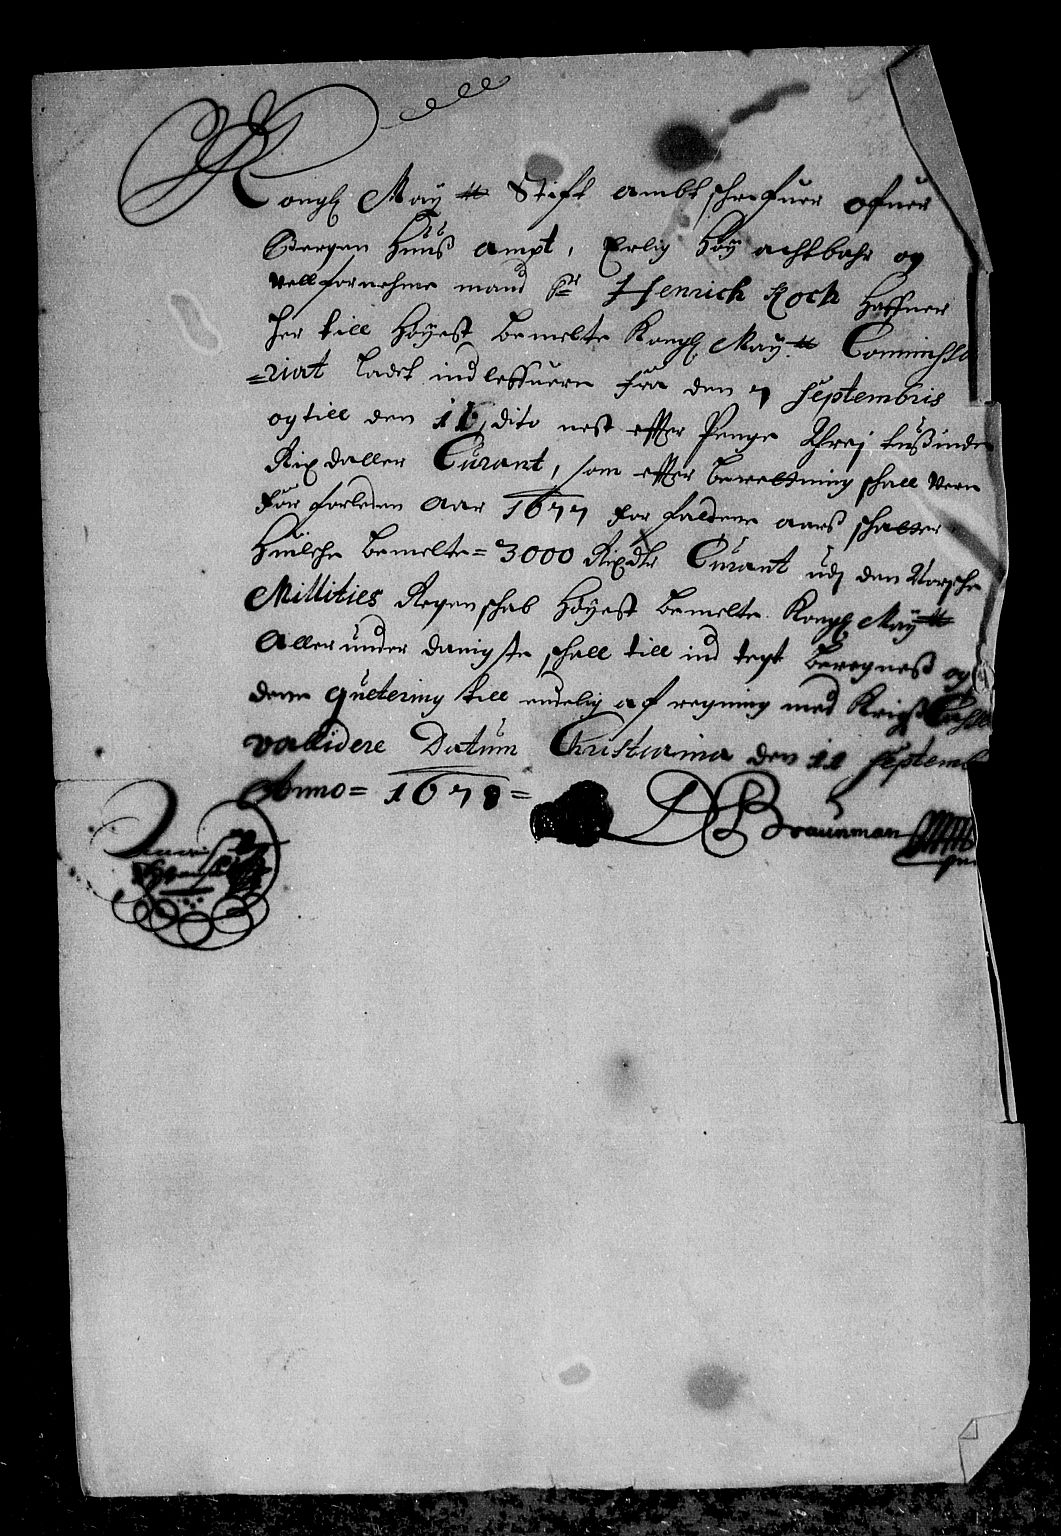 Kongl May tt Stift ambt schrefuer ofuer
Bergen Huus ampt, Erlig Høy achtbahr og
Vellfornehme mand Sr Henrick Koch Haffuer
her till Høyest bemelte Kongl May tt Commissa
=riat ladet indleffuere fra den 7 Septembris
og till den 16 dito nest effter Penge Threj tusinde
Rixdaller Curant, som effter berettning schall vere
for forleden Aar 1677 for faldene aars schatter
Huilche bemelte = 3000 Rixdlr Curant udj den Norsche
Millities Regenschab Høyest bemelte Kongl May tt
Aller under danigste schall till ind tegt beregnes og
denne quitering till endelig af regning med Krigs
validere Datum Christiania den 11 Septemb
Anno = 1678 =
D Braunman